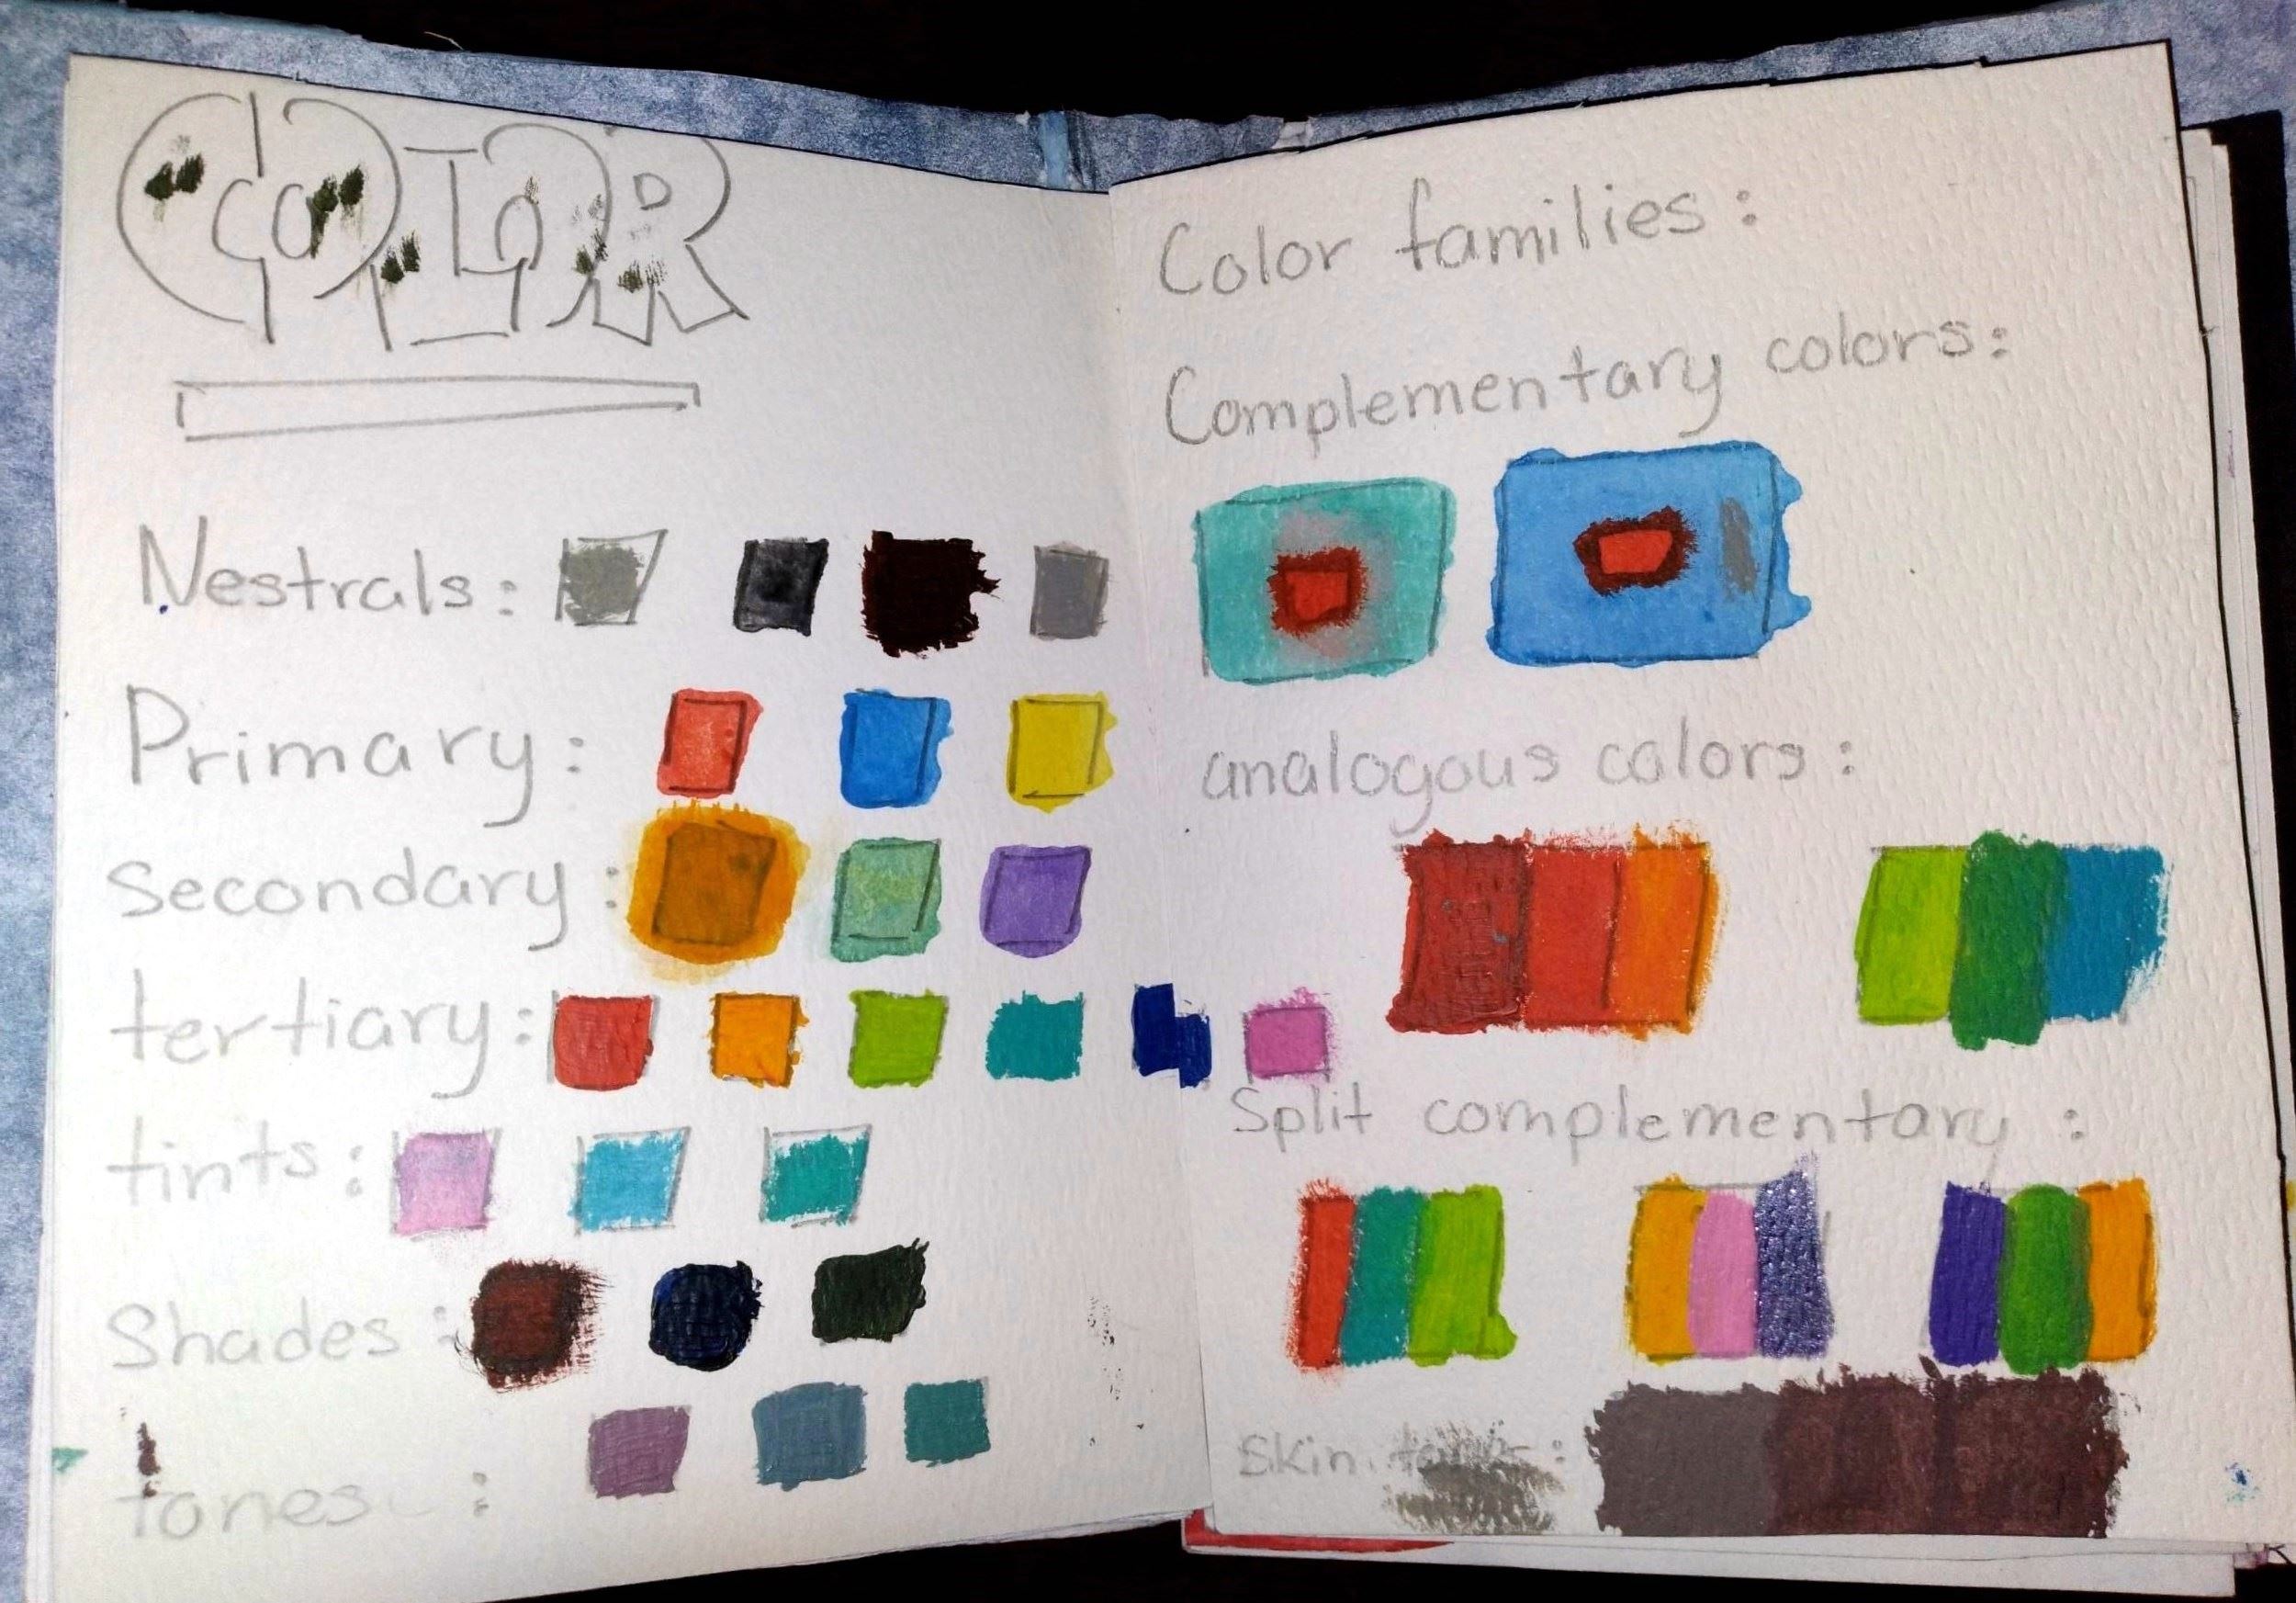 COLOR
Nestrals:
Primary:
secondary:
tertiary:
tints:
Shades:
tones:
Color families:
Complementary colors:
analogous colors:
Split complementary:
Skin